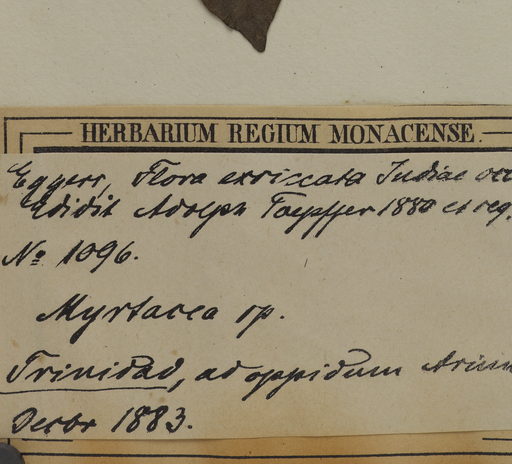 HERBARIUM REGIUM MONACENSE.
Eggers, Flora exsiccata Indiae occ
Edidit Adolph Toepffer 1880 et seq.
No 1096.
Myrtacea sp.
Trinidad, ad oppidum Arim
Decbr 1883.